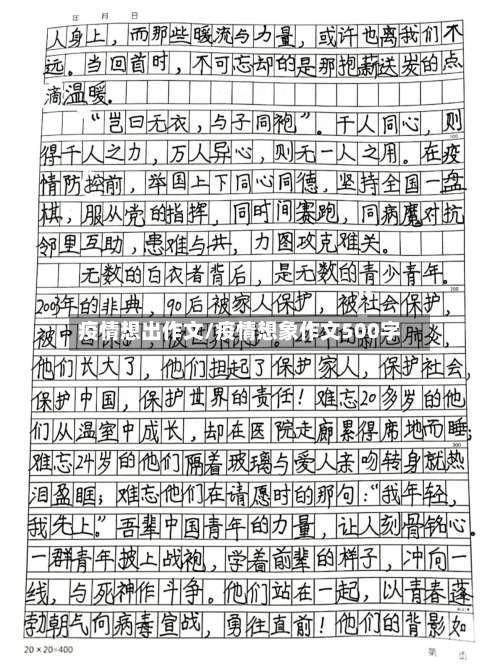 年 月 日
人身上，而那些暖流与力量，或许也离我们不
远。当回首时，不可忘却的是那抱薪送炭的点
滴温暖.
“岂曰无衣，与子同袍”。千人同心，则
得千人之力，万人异心，则无一人之用。在疫
情防控前，举国上下同心同德，坚持全国一盘
棋，服从党的指挥，同时间赛跑，同病魔对抗
邻里互助，患难与共，力图攻克难关。
无数的白衣者背后，是无数的青少青年。
2003年的非典，90后被家人保护，被社会保护，
疫情想出作文/疫情想象作文500字
他们长大了，他们担起了保护家人，保护社会，
保护中国，保护世界的责任！难忘20多岁的他
们从温室中成长，却在医院走廊累得席地而睡；
难忘24岁的他们隔着玻璃与爱人亲吻转身就热
泪盈眶；难忘他们在请愿时的那句：“我年轻，
我先上。”吾辈中国青年的力量，让人刻骨铭心。
一群青年披上战袍，学着前辈的样子，冲向一
线，与死神作斗争。他们站在一起，以青春蓬
勃朝气向病毒宣战，勇往直前！他们的背影如
20×20=400
第 页